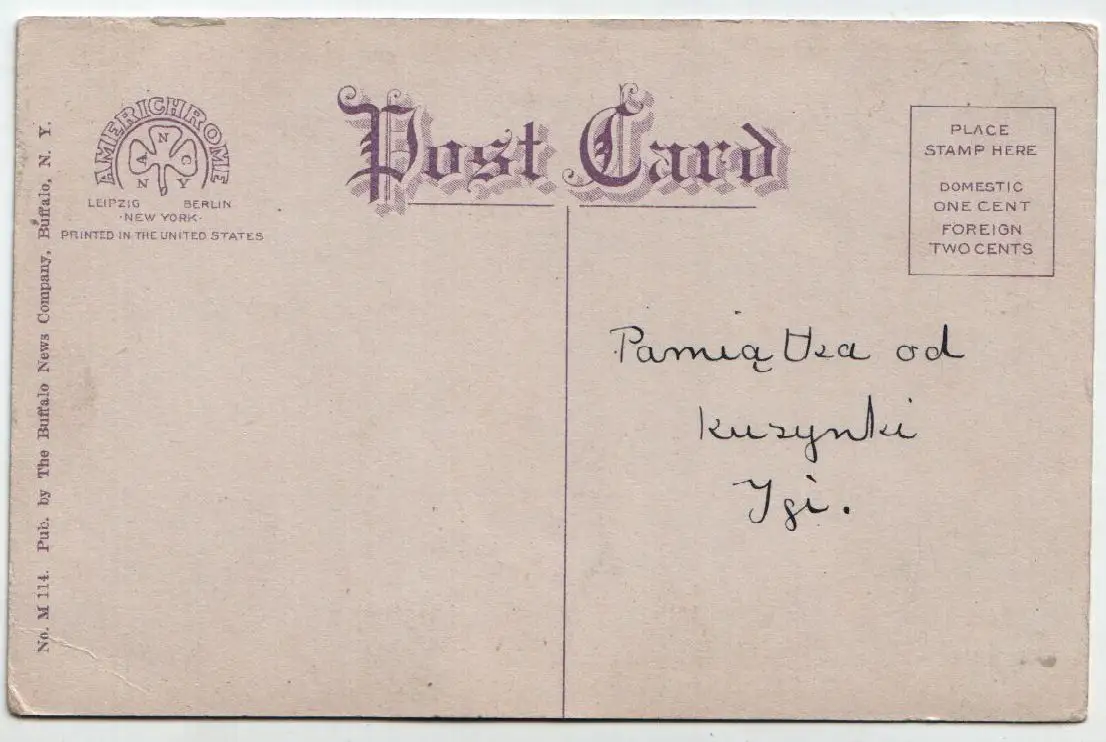 AMERICHROME
A N C
N Y
LEIPZIG BERLIN
·NEW YORK·
PRINTED IN THE UNITED STATES
No. M 114. Pub. by The Buffalo News Company, Buffalo, N. Y.
Post Card
PLACE
STAMP HERE
DOMESTIC
ONE CENT
FOREIGN
TWO CENTS
Pamiątka od
kuzynki
Igi.